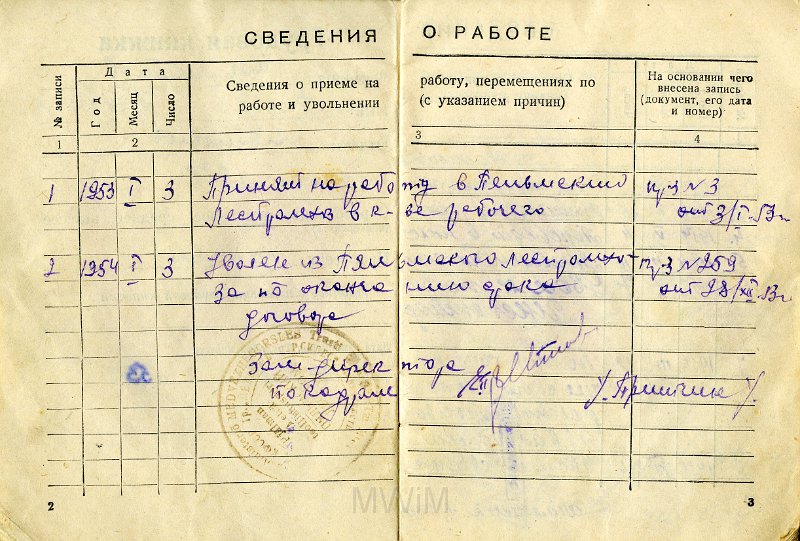 СВЕДЕНИЯ О РАБОТЕ
№ записи
Дата
Год
Месяц
Число
Сведения о приеме на работу, перемещениях по
работе и увольнении (с указанием причин)
На основании чего
внесена запись
(документ, его дата
и номер)
1 2 3 4
1 1953 I 3 Принят на работу в Пяльмский пр. з № 3
Леспромхоз в к-ве рабочего от 3/I-53 г
2 1954 I 3 Уволен из Пяльмского леспромхо- пр. з № 259
за по окончанию срока от 28/XII 53 г.
договора
Зам. директора
по кадрам
MWiM
2 3